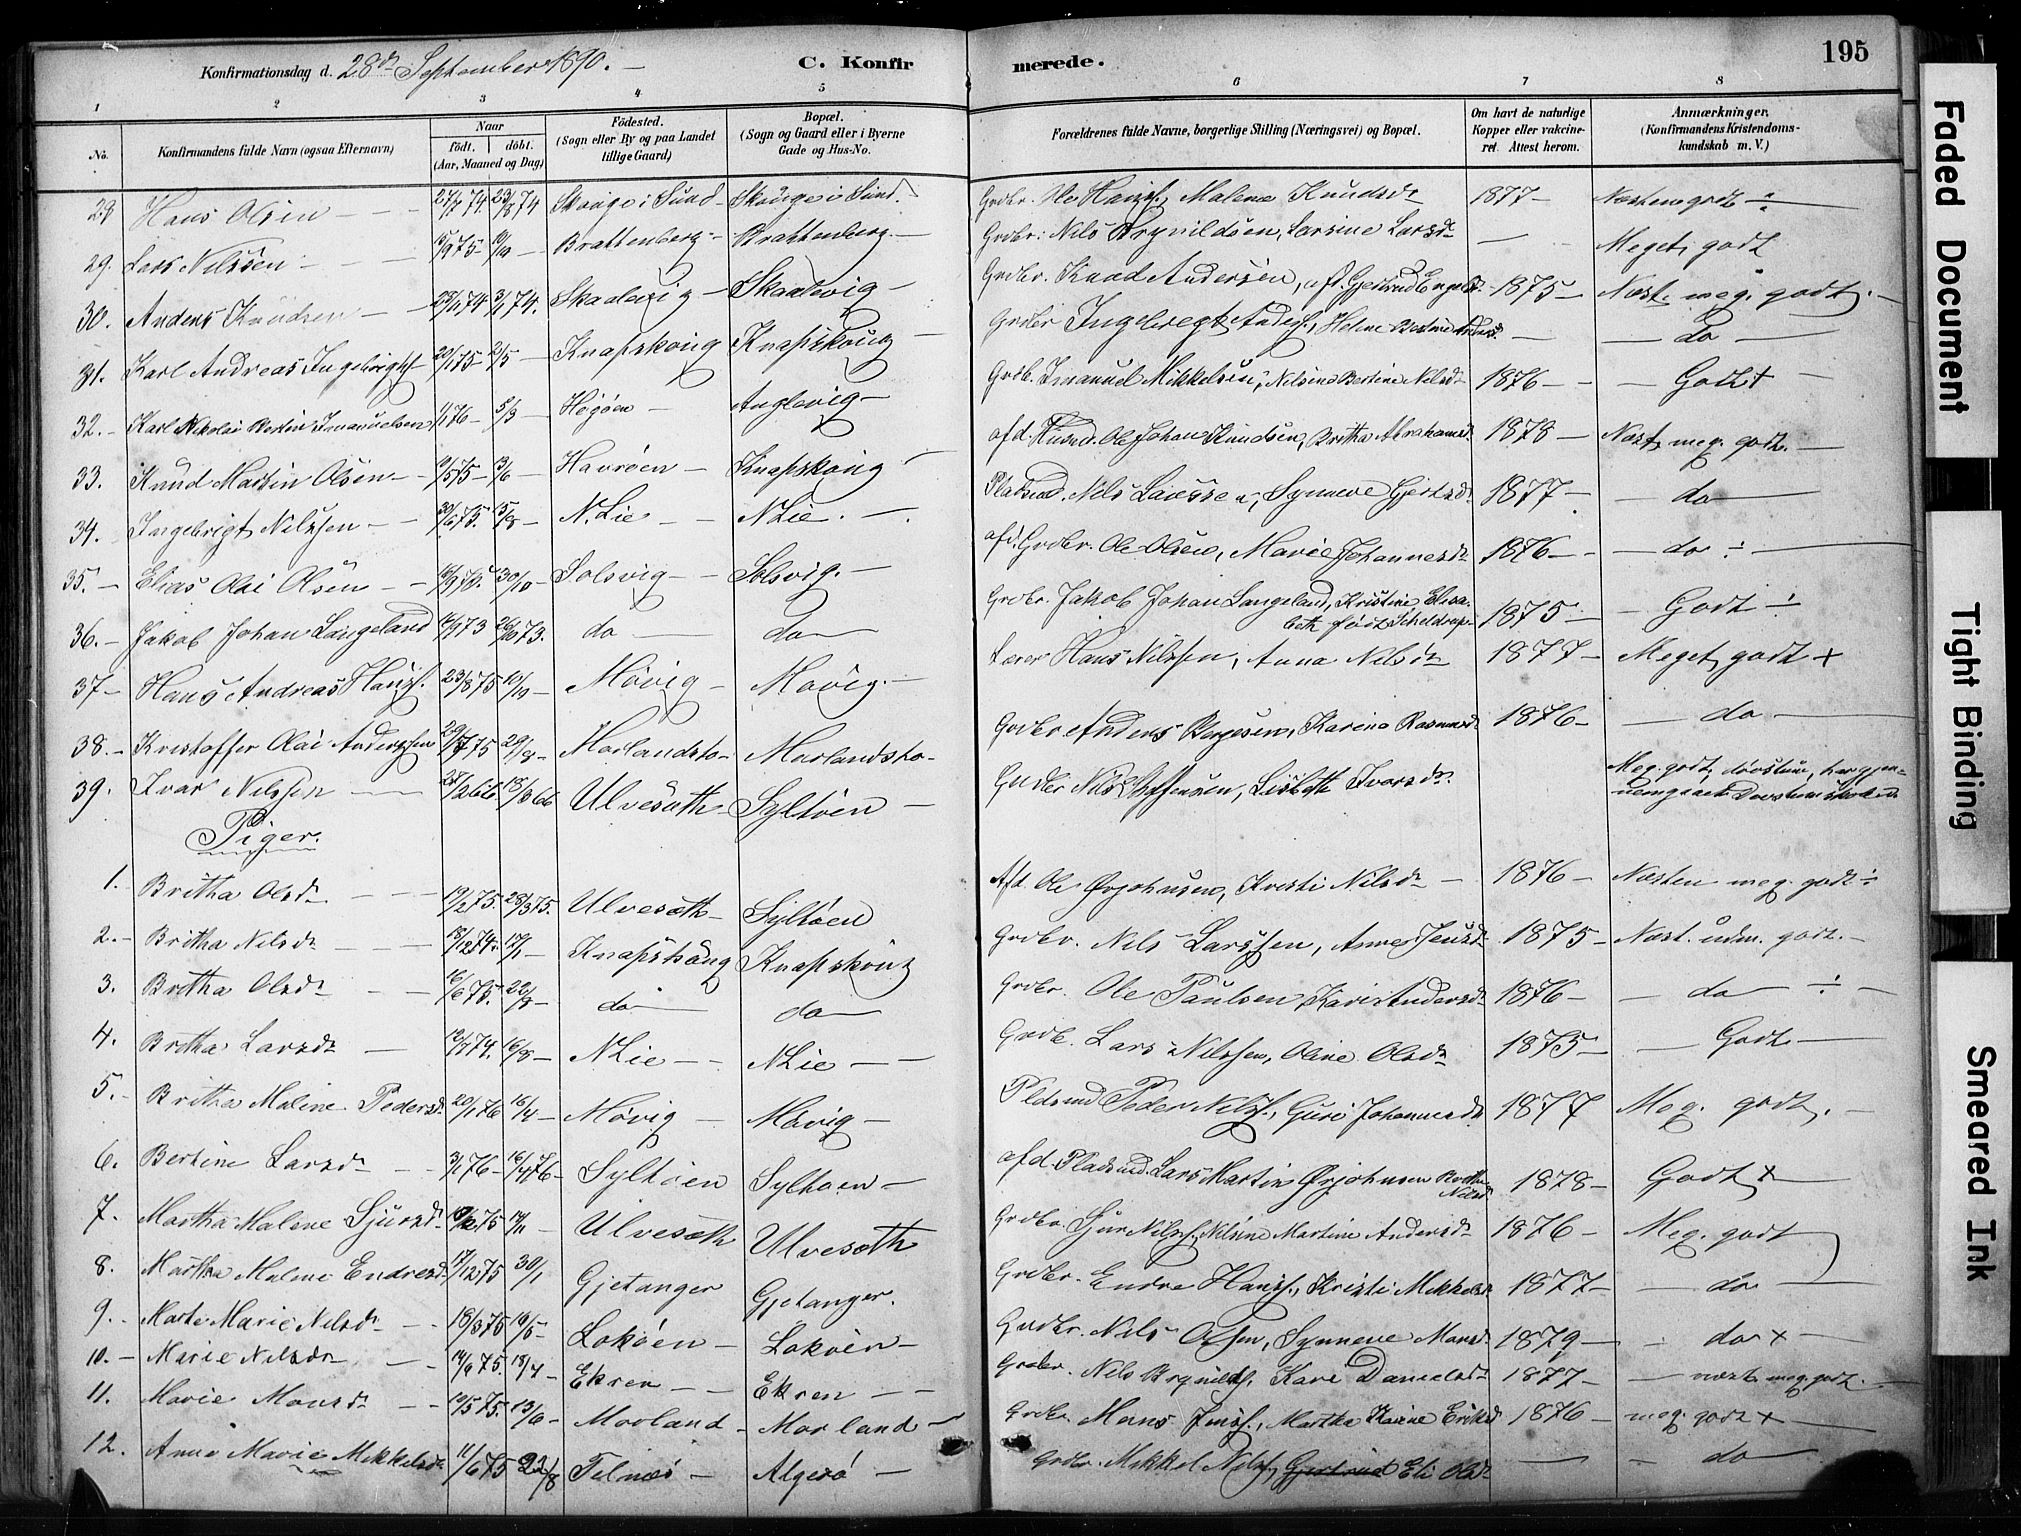 Konfirmationsdag d. 28de September 1890. —
C. Konfirmerede.
195
1 2 3 4 5 6 7 8
No.
Konfirmandens fulde Navn (ogsaa Efternavn)
Naar
födt. döbt.
(Aar, Maaned og Dag)
Födested.
(Sogn eller By og paa Landet
tillige Gaard)
Bopæl.
(Sogn og Gaard eller i Byerne
Gade og Hus-No.
Forældrenes fulde Navne, borgerlige Stilling (Næringsvei) og Bopæl.
Om havt de naturlige
Kopper eller vakcine-
ret. Attest herom.
Anmærkninger.
(Konfirmandens Kristendoms-
kundskab m. V.)
Hans Olsen — Skouge i Sund — Skouge i Sund. Grdbr. Ole Hansf., Malene Knudsdr 1877 — Næsten godt
29. Lars Nilssen — 15/9 75 — Brattenberg — Brattenberg — Grdbr: Nils Brynildsen, Larsine Larsdr — Meget godt
30. Anders Knudsen — Skaalevig — Skaalevig — Grdbr. Knud Andersen, Gjertrud 1875 — Næst. meg. godt. —
31. Karl Andreas Ingebrigtsf 20/1 75 — 2/5 — Knapskoug Knapskoug — Grdbr Ingebregt Andersf., Helene — do —
32. — Karl Nikolai Imanuelsen 1/1 76 — 5/3 — Høgøen — Anglevig — Grdb. Imanuel Mikkelsen, Nilsine Bertine Nilsdr 1876 — — Godt + —
33. Knud Martin Olsen — 13/6 — Havrøen — Knapskoug — afd. Husmd. Ole Johan Knudsen, Britha Abrahamsdr 1878 — Næst. meg. godt. —
34. Ingebrigt Nilssen — 30/6 75. 15/8 — N. Lie — N Lie. — Pladsmd. Nils Larssen, Synneve Gjertsdr 1877 — — do —
35. — Elias Olai Olsen — 30/10 — Solsvig — Solsvig. — afd. Grdbr. Ole Olsen, Marie Johannesdr 1876 — — do ÷ —
36. — Jakob Johan Langeland 26/10 73. do — do — Grdbr. Jakob Johan Langeland, Kristine Elisa-
beth født Scheldrup — 1875 — — Godt ÷
37 — Hans Andreas Hansf. 23/8 75 10/10 — Møvig — Møvig. — Lærer Hans Nilssen, Anna Nilsdr 1877 — Meget godt +
38. — Kristoffer Olai Anderssen 29/8 — Morlandsto — Morlandsto — Grdbr Anders Børgesen, Karine Rasmusdr 1876 — — do —
39. Ivar Nilssen — 18/3 66 Ulvesæth — Syltøen — Grdbr Nils Lisbeth Ivarsdr. Meg. godt, døvstum, har gjen-
nemgaaet Døvstumskolen
Piger.
1. Britha Olsdr — 19/2 75. 28/3 75. Ulvesæth — Syltøen Afd. Ole Ørjohnsen, Kristi Nilsdr — 1876 — Næsten meg. godt ÷
2. — Britha Nilsdr — 18/12 74. 17/1 — Knapskoug Knapskoug Grdbr. Nils Larssen, Anne Jensdr 1875 — Næst. udm. godt. —
3. Britha Olsdr — 16/6 75. 22/8 — do do Grdbr. Ole Paulsen, Kari Andersdr 1876 — — do — ÷ —
4. Britha Larsdr — 12/7 74. 16/8 — N Lie — N Lie — Grdb. Lars Nilssen, Oline Olsdr 1875 — — Godt —
5. Britha Maline Pedersdr 20/1 76 16/4 — Møvig — Møvig — Pladsmd Peder Nilsf., Guri Johannesdr 1877 Meg. godt. —
6. Bertine Larsdr — 3/1 76 — 16/4 76 — Syltøen Syltøen — afd. Pladsmd. Lars Martin Ørjohnsen Britha
Nilsdr 1878 — Godt +
7. Martha Malene Sjursdr Ulvesæth Ulvesæth Grdbr. Sjur Nilsf., Nilsine Martine Andersdr 1876 — Meg. godt
8. Martha Malene Endresdr 17/12 75 30/1 Gjetanger Gjetanger. Grdbr. Endre Hansf., Kristi Mikkelsdr 1877 — — do —
9. Marte Marie Nilsdr — 18/3 75 16/5 — Lokøen — Lokøen — Grdbr. Nils Olsen, Synneve Monsdr 1879 — — do + —
10. — Marie Nilsdr — 18/7 — Ekren — Ekren — Grdbr. Nils Brynildsf. Kari Danielsdr 1877 — — næst. meg. godt. —
11. Marie Monsdr — 10/5 75. 13/6 — Morland — Morland — Grdbr. Mons Jensf., Martha Karine Eriksd 1876 — meg. godt + —
12. Anne Marie Mikkelsdr 11/6 75 22/8 Telnæs — Algerø — Grdbr. Mikkel Nilsf., Gjertrud Eli Olsdr — — do —
Faded Document
Tight Binding
Smeared Ink